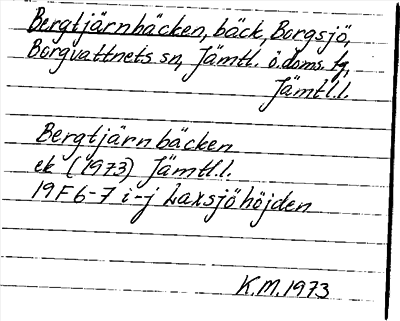 Bergtjärnbäcken, bäck, Borgsjö,
Borgvattnets sn, Jämtl. ö. doms. tg,
Jämtl.l.
Bergtjärnbäcken
ek (1973) Jämtl.l.
19F6-7 i-j Laxsjöhöjden
K.M. 1973